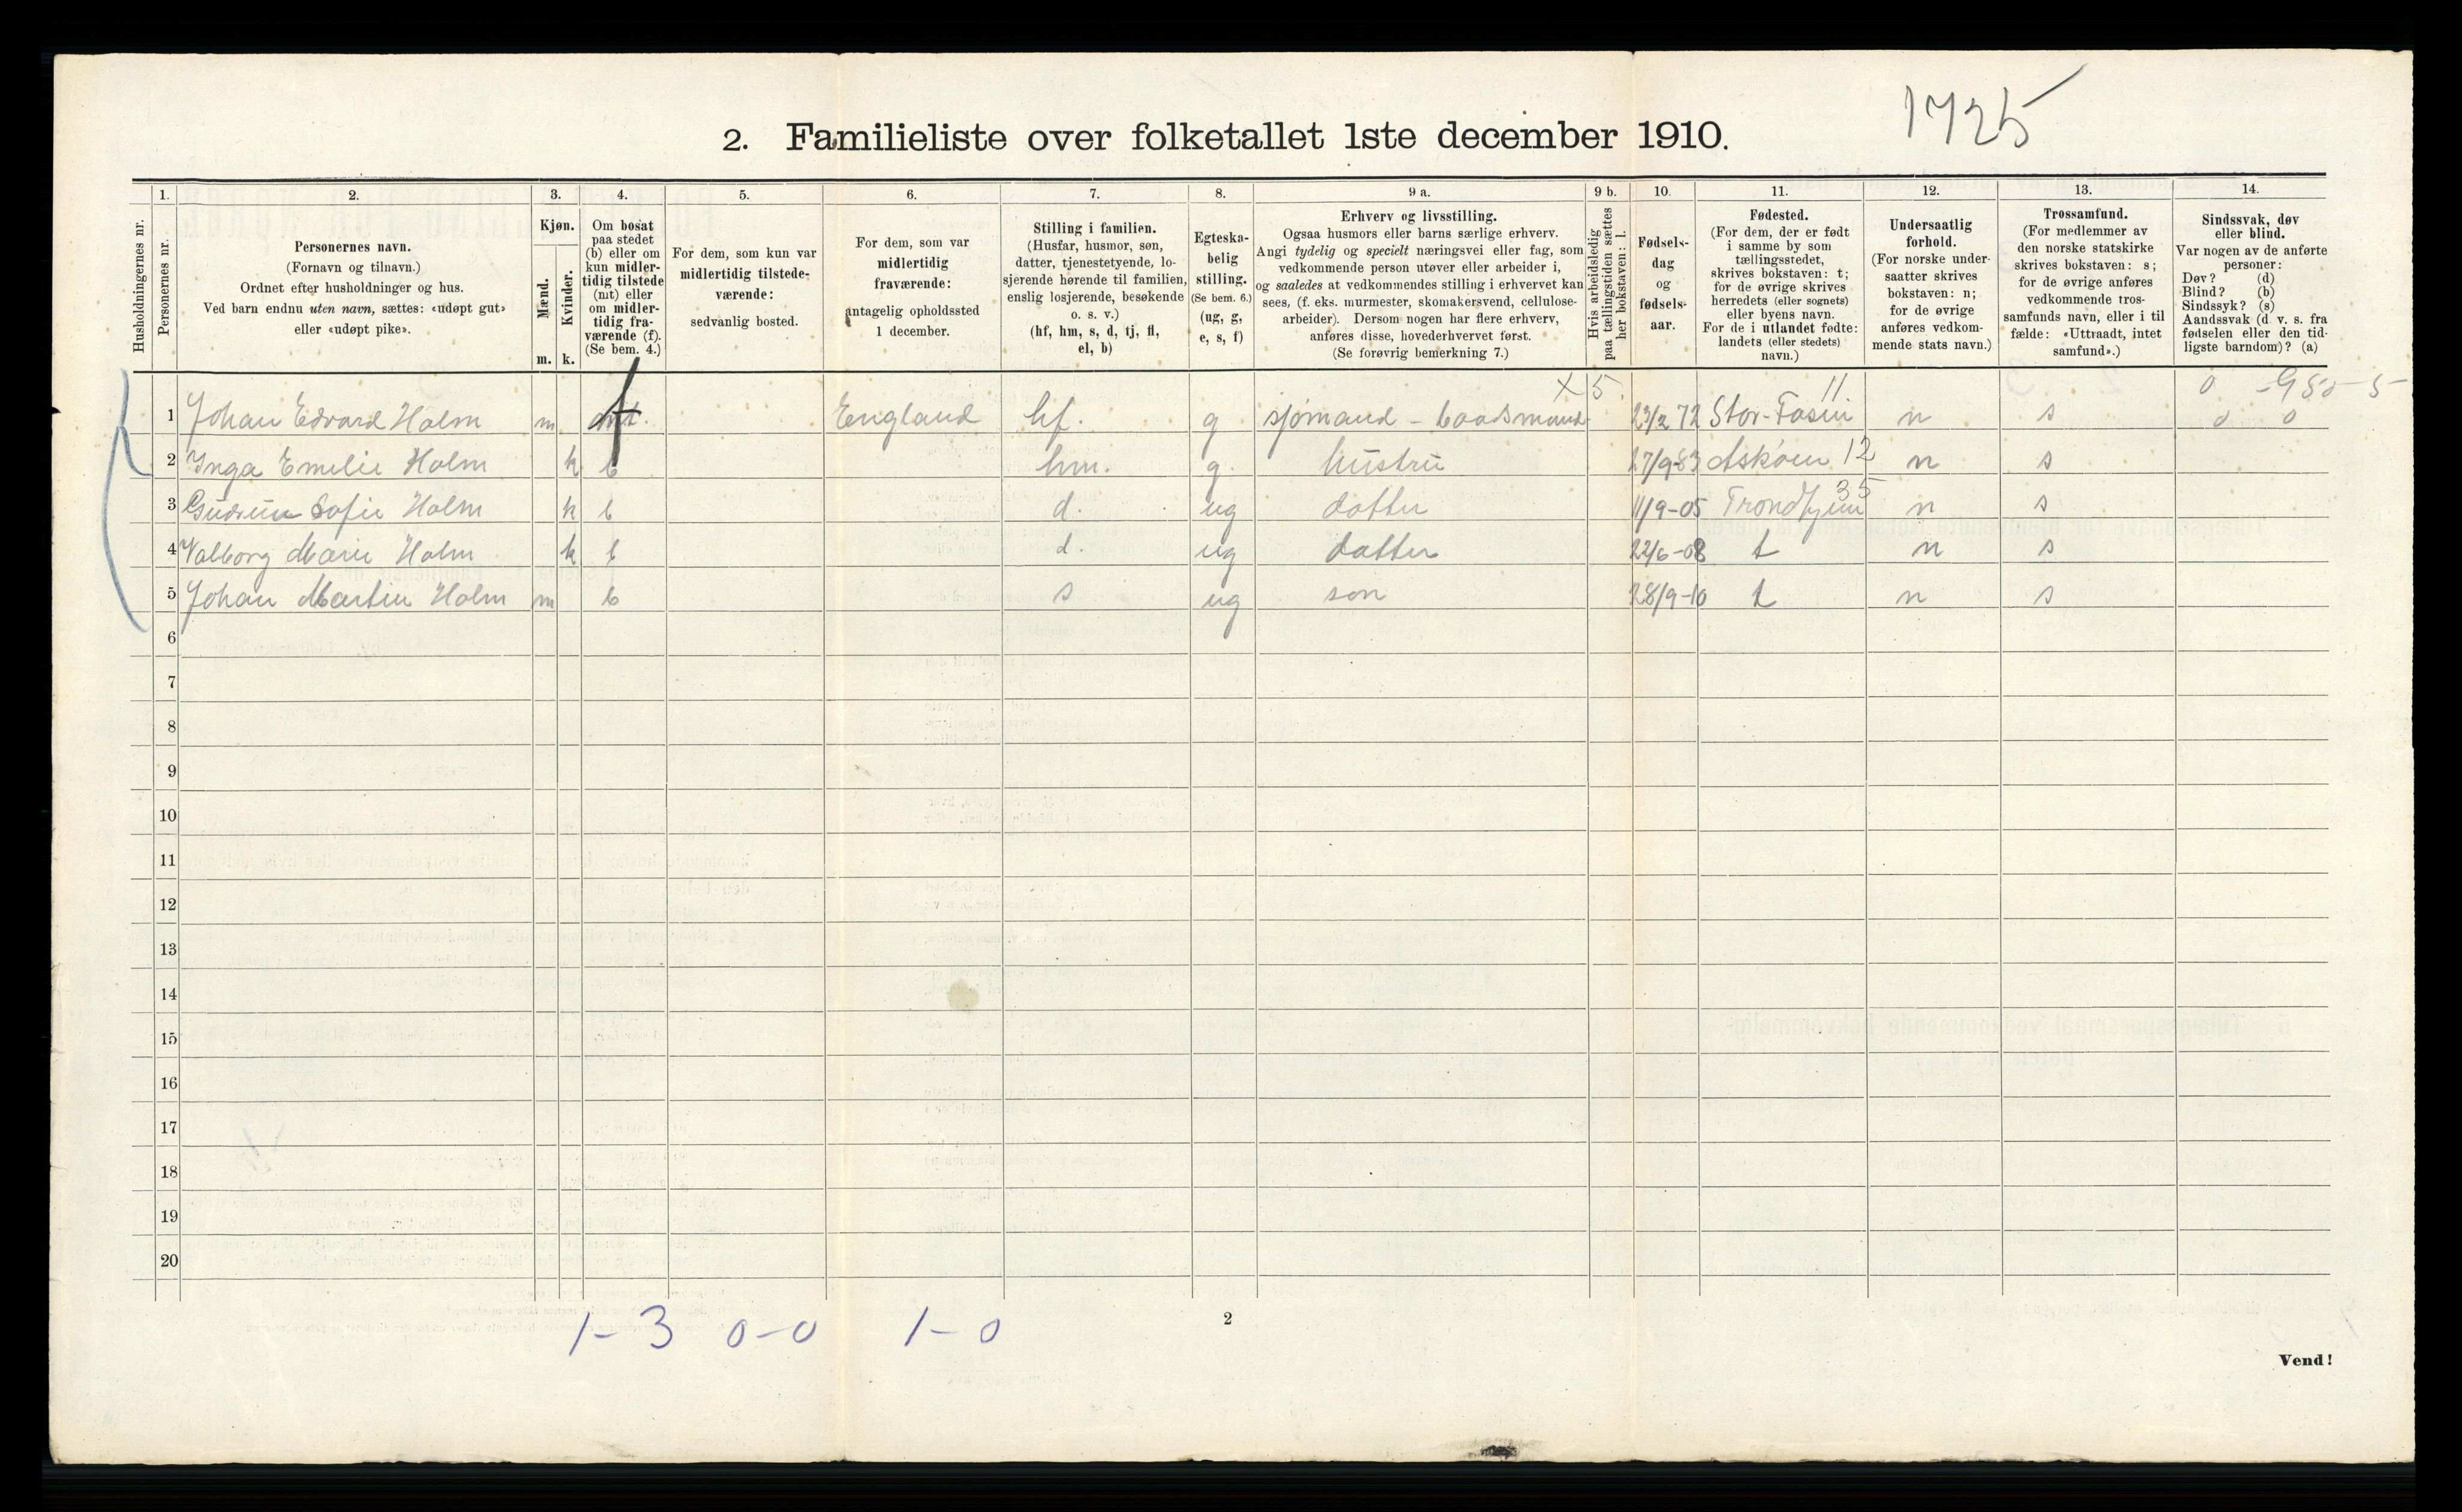 1725
2. Familieliste over folketallet 1ste december 1910.
Husholdningernes nr.
1.
Personernes nr.
2.
Personernes navn.
(Fornavn og tilnavn.)
Ordnet efter husholdninger og hus.
Ved barn endnu uten navn, sættes: «udøpt gut»
eller «udøpt pike».
3.
Kjøn.
Mænd.
Kvinder.
m. k.
4.
Om bosat
paa stedet
(b) eller om
kun midler-
tidig tilstede
(mt) eller
om midler-
tidig fra-
værende (f).
(Se bem. 4.)
5.
For dem, som kun var
midlertidig tilstede-
værende:
sedvanlig bosted.
6.
For dem, som var
midlertidig
fraværende:
antagelig opholdssted
1 december.
7.
Stilling i familien.
(Husfar, husmor, søn,
datter, tjenestetyende, lo-
sjerende hørende til familien,
enslig losjerende, besøkende
o. s. v.)
(hf, hm, s, d, tj, fl,
el, b)
8.
Egteska-
belig
stilling.
(Se bem. 6.)
(ug, g,
e, s, f)
9 a.
Erhverv og livsstilling.
Ogsaa husmors eller barns særlige erhverv.
Angi tydelig og specielt næringsvei eller fag, som
vedkommende person utøver eller arbeider i,
og saaledes at vedkommendes stilling i erhvervet kan
sees, (f. eks. murmester, skomakersvend, cellulose-
arbeider). Dersom nogen har flere erhverv,
anføres disse, hovederhvervet først.
(Se forøvrig bemerkning 7.)
9 b.
Hvis arbeidsledig
paa tællingstiden sættes
her bokstaven: l.
10.
Fødsels-
dag
og
fødsels-
aar.
11.
Fødested.
(For dem, der er født
i samme by som
tællingsstedet,
skrives bokstaven: t;
for de øvrige skrives
herredets (eller sognets)
eller byens navn.
For de i utlandet fødte:
landets (eller stedets)
navn.)
12.
Undersaatlig
forhold.
(For norske under-
saatter skrives
bokstaven: n;
for de øvrige
anføres vedkom-
mende stats navn.)
13.
Trossamfund.
(For medlemmer av
den norske statskirke
skrives bokstaven: s;
for de øvrige anføres
vedkommende tros-
samfunds navn, eller i til
fælde: «Uttraadt, intet
samfund».)
14.
Sindssvak, døv
eller blind.
Var nogen av de anførte
personer:
Døv? (d)
Blind? (b)
Sindssyk? (s)
Aandssvak (d. v. s. fra
fødselen eller den tid-
ligste barndom)? (a)
x 5. 11 0
1 Johan Edvard Holm m f England hf. g sjømand - baadsmand 23/2 72 Stor-Fosen n s 0 0
2 Inga Emelie Holm k b hm. g. hustru 27/9-83 Askøen 12 n s
3 Gudrun Sofie Holm k b d. ug datter 11/9-05 Trondhjem 35 n s
4 Valborg Marie Holm k b d. ug datter 22/6-08 t n s
5 Johan Martin Holm m b s ug son 28/9-10 t n s
6
7
8
9
10
11
12
13
14
15
16
17
18
19
20
1-3 0-0 1-0
2
Vend!